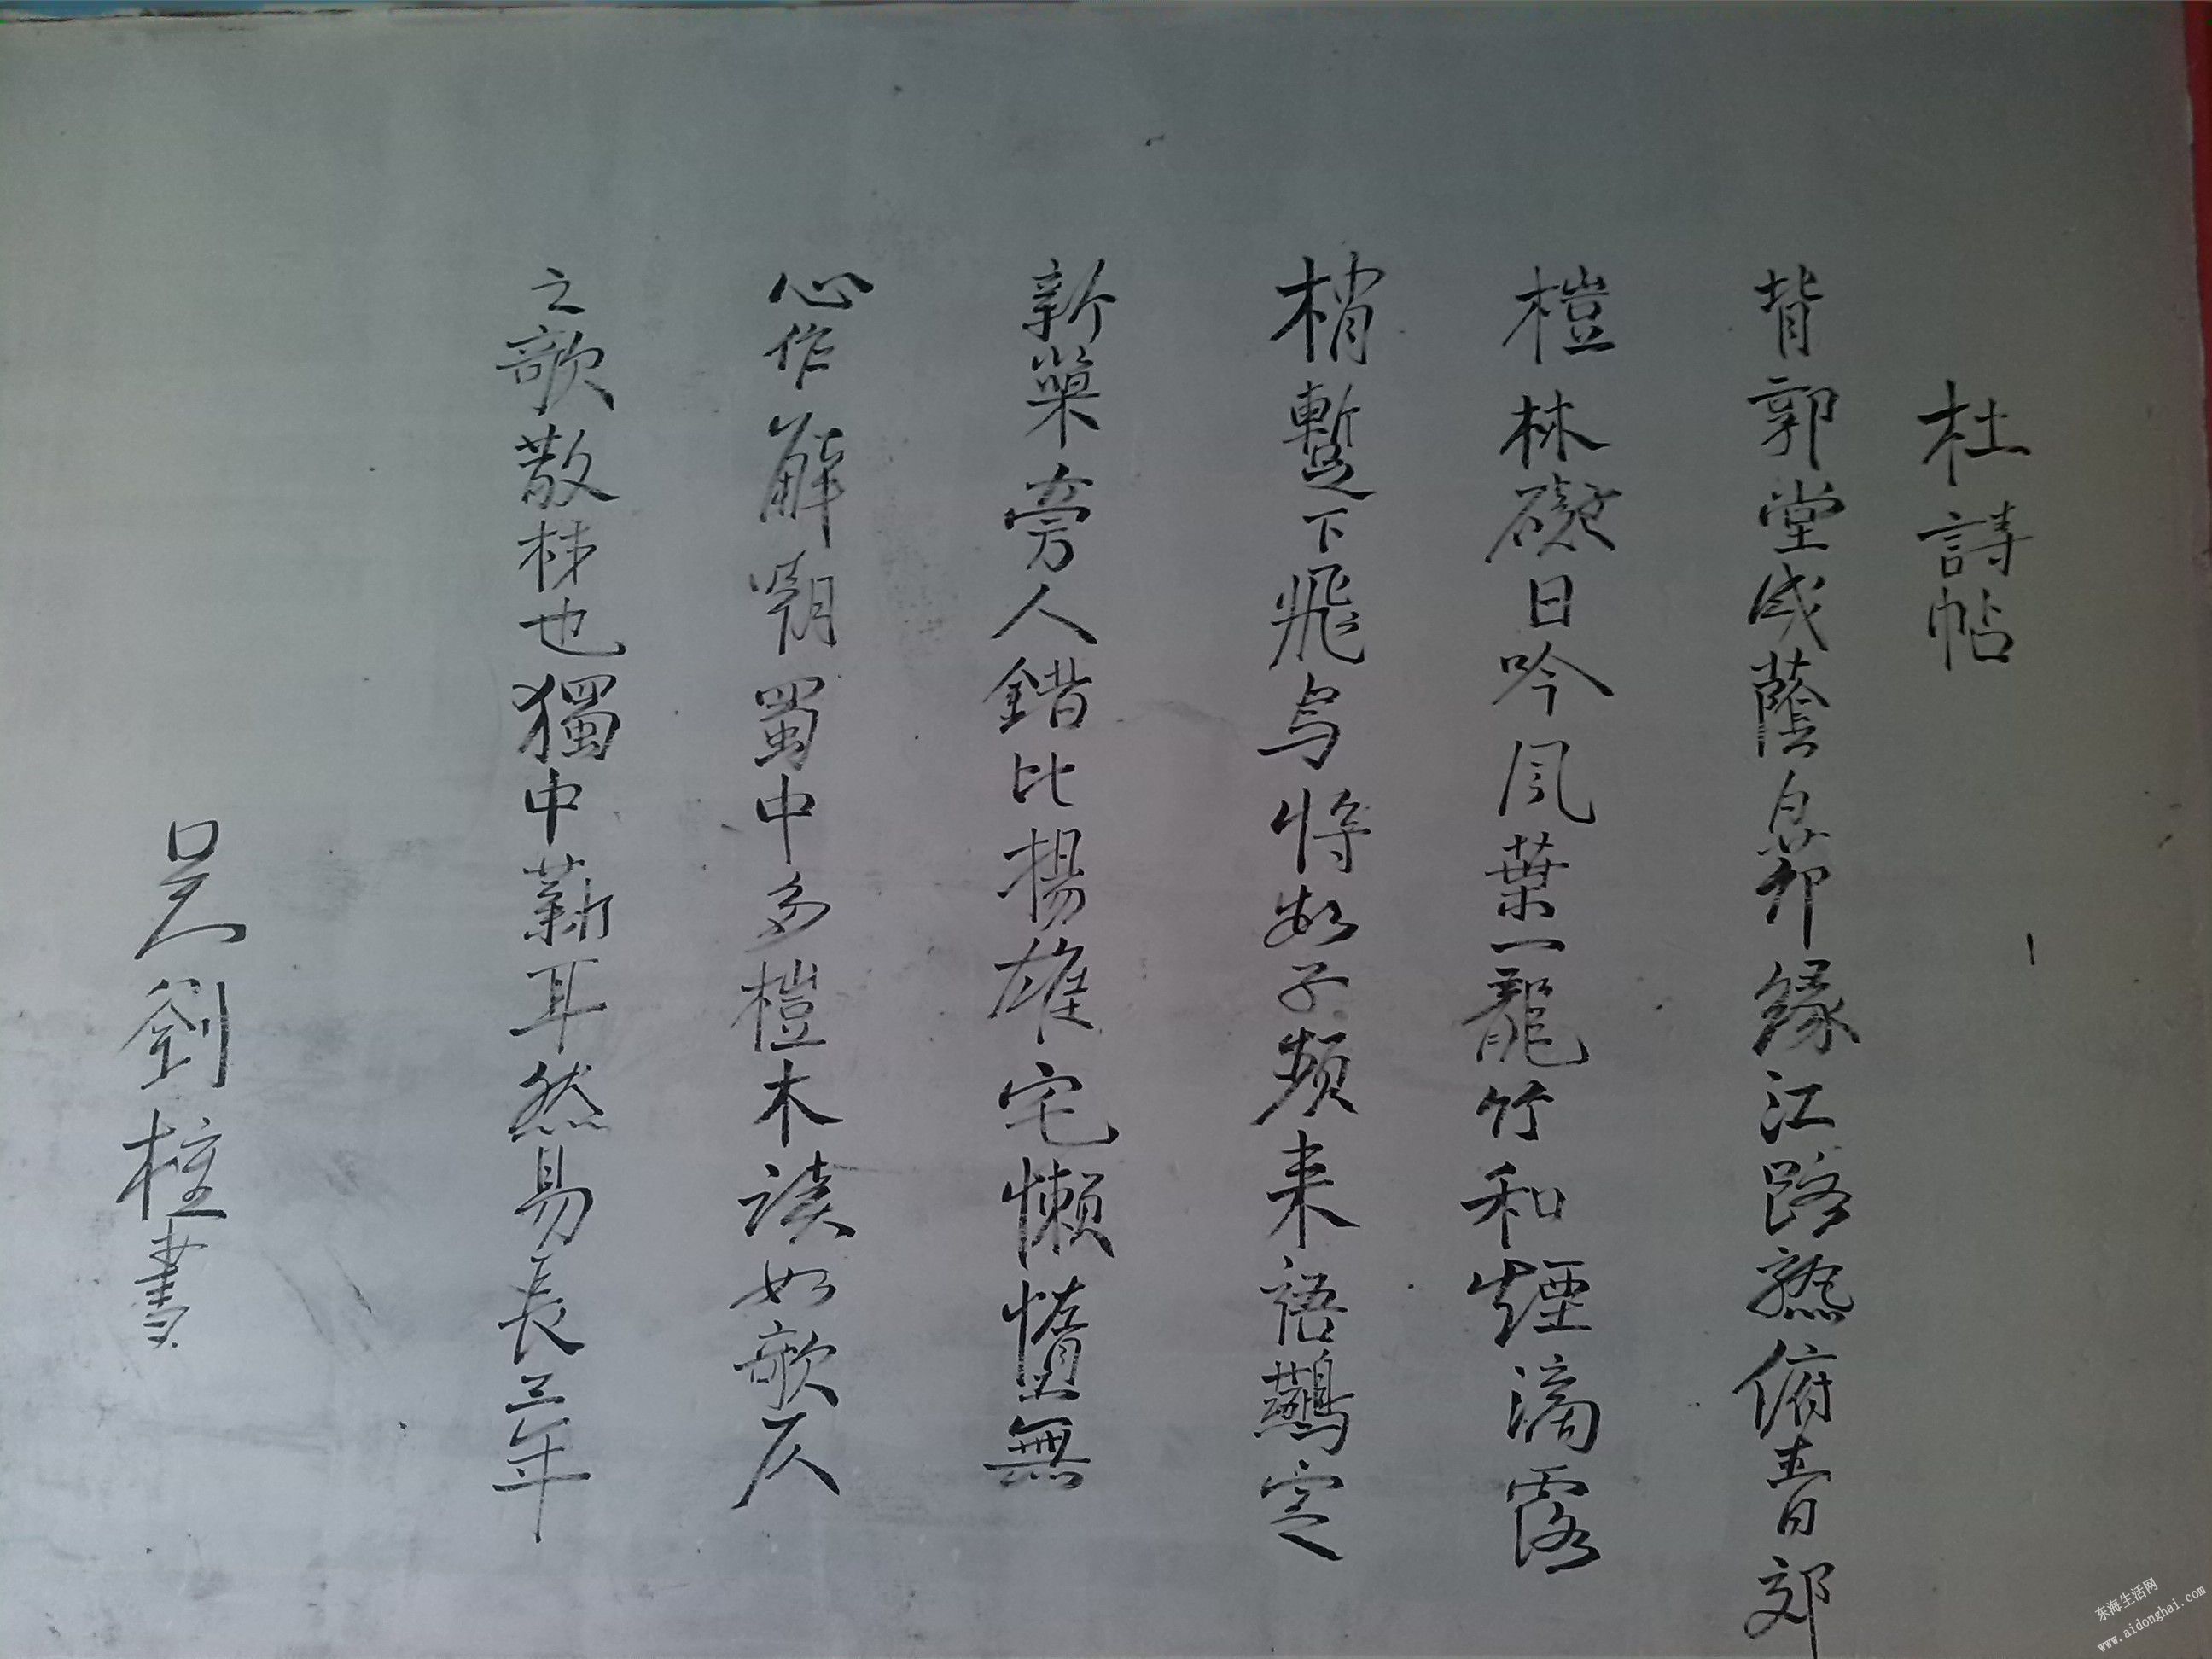 杜詩帖
背郭堂成蔭白茆緣江路熟俯青郊
榿林礙日吟風葉一籠竹和煙滴露
梢暫下飛烏將數子頻來語鷰定
新巢旁人錯比揚雄宅懶惰無
心作解嘲蜀中多榿木讀如欹仄
之欹散材也獨中薪耳然易長三年
吴人劉柱書
东海生活网
www.aidonghai.com